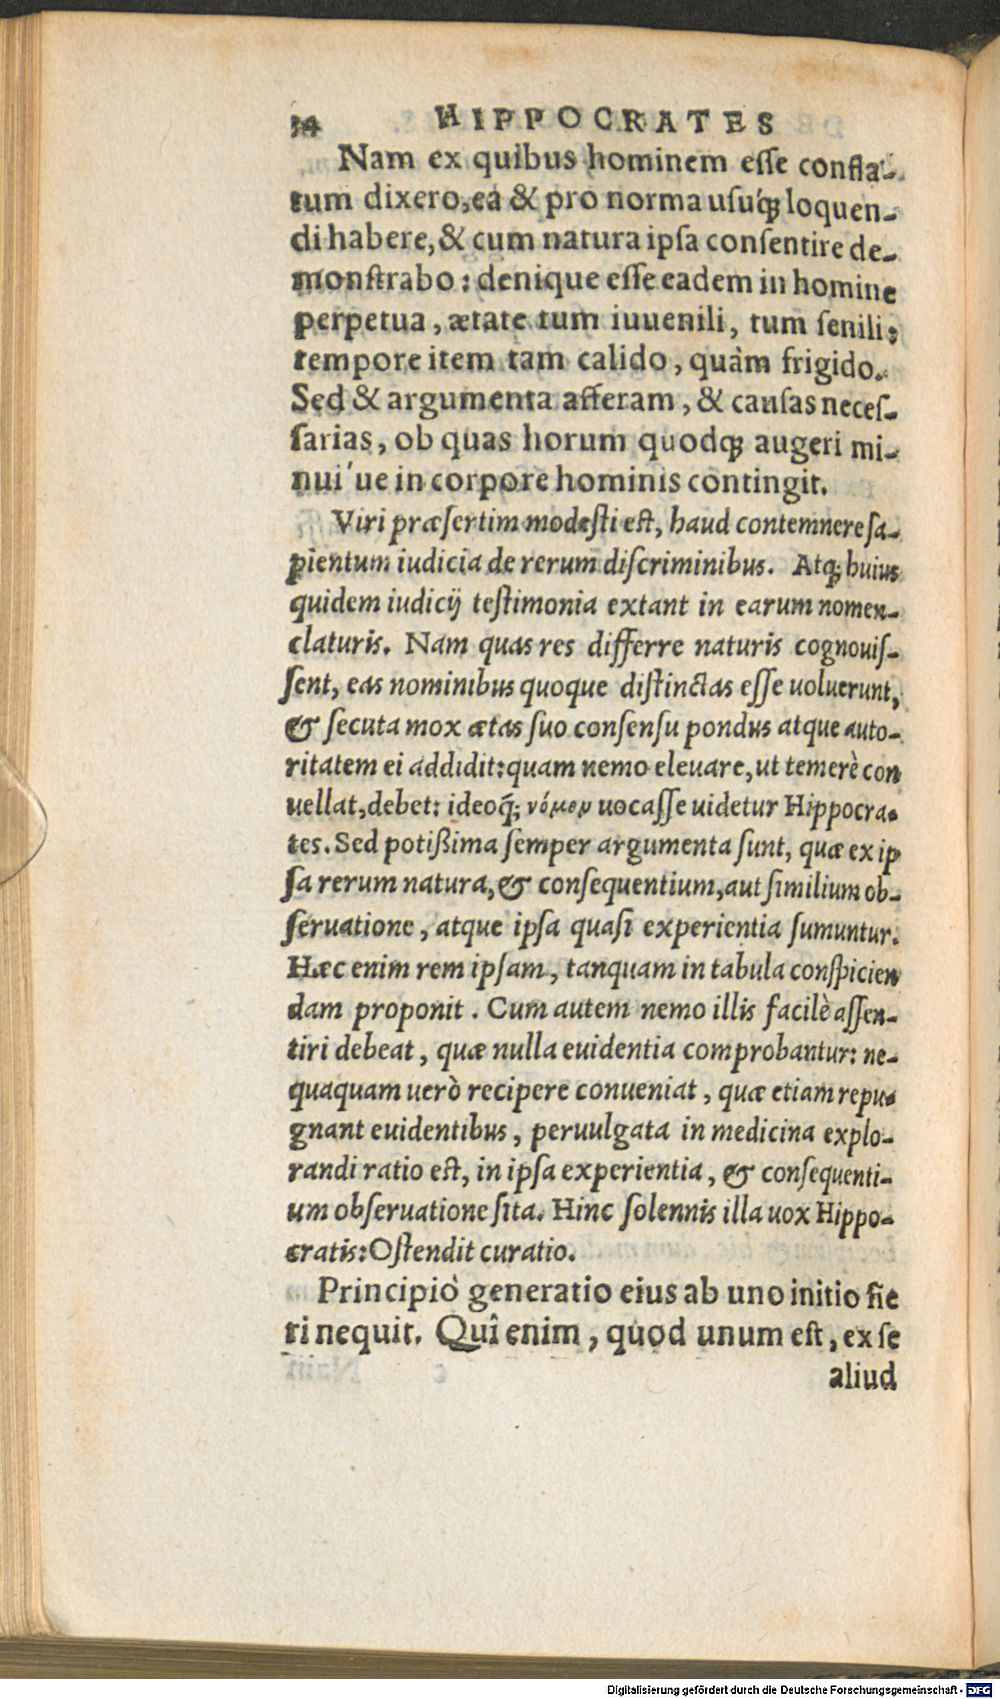 34 HIPPOCRATES
Nam ex quibus hominem esse confla-
tum dixero, ea & pro norma usuq́ꝫ loquen-
di habere, & cum natura ipsa consentire de-
monstrabo: denique esse eadem in homine
perpetua, ætate tum iuuenili, tum senili:
tempore item tam calido, quàm frigido.
Sed & argumenta afferam, & causas neces-
sarias, ob quas horum quodqꝫ augeri mi-
nui´ue in corpore hominis contingit.
Viri præsertim modesti est, haud contemnere sa-
pientum iudicia de rerum discriminibus. Atqꝫ huius
quidem iudicij testimonia extant in earum nomen-
claturis. Nam quas res differre naturis cognouis-
sent, eas nominibus quoque distinctas esse uoluerunt,
& secuta mox ætas suo consensu pondus atque auto-
ritatem ei addidit: quam nemo eleuare, ut temerè con
uellat, debet: ideoq́ꝫ νόμον uocasse uidetur Hippocra-
tes. Sed potißima semper argumenta sunt, quæ ex ip
sa rerum natura, & consequentium, aut similium ob-
seruatione, atque ipsa quasi experientia sumuntur.
Hæc enim rem ipsam, tanquam in tabula conspicien
dam proponit. Cum autem nemo illis facilè assen-
tiri debeat, quæ nulla euidentia comprobantur: ne-
quaquam uerò recipere conueniat, quæ etiam repu-
gnant euidentibus, peruulgata in medicina explo-
randi ratio est, in ipsa experientia, & consequenti-
um obseruatione sita. Hinc solennis illa uox Hippo-
cratis: Ostendit curatio.
Principiò generatio eius ab uno initio fie
ri nequit. Quî enim, quod unum est, ex se
aliud
Digitalisierung gefördert durch die Deutsche Forschungsgemeinschaft - DFG